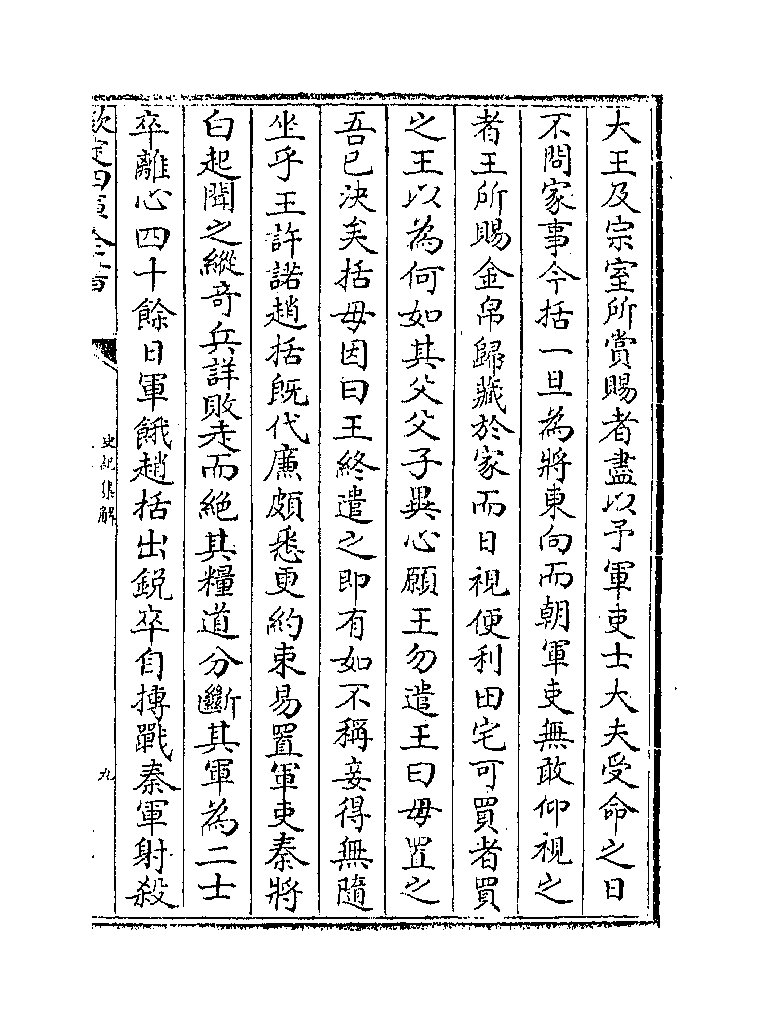 大王及宗室所賞賜者盡以予軍吏士大夫受命之日
不問家事今括一旦為將東向而朝軍吏無敢仰視之
者王所賜金帛歸藏於家而日視便利田宅可買者買
之王以為何如其父父子異心願王勿遣王曰毋置之
吾已決矣括母因曰王終遣之即有如不稱妾得無隨
坐乎王許諾趙括既代廉頗悉更約束易置軍吏秦將
白起聞之縱奇兵詳敗走而絶其糧道分斷其軍為二士
卒離心四十餘日軍餓趙括出銳卒自搏戰秦軍射殺
欽定四庫全書
史記集解
九